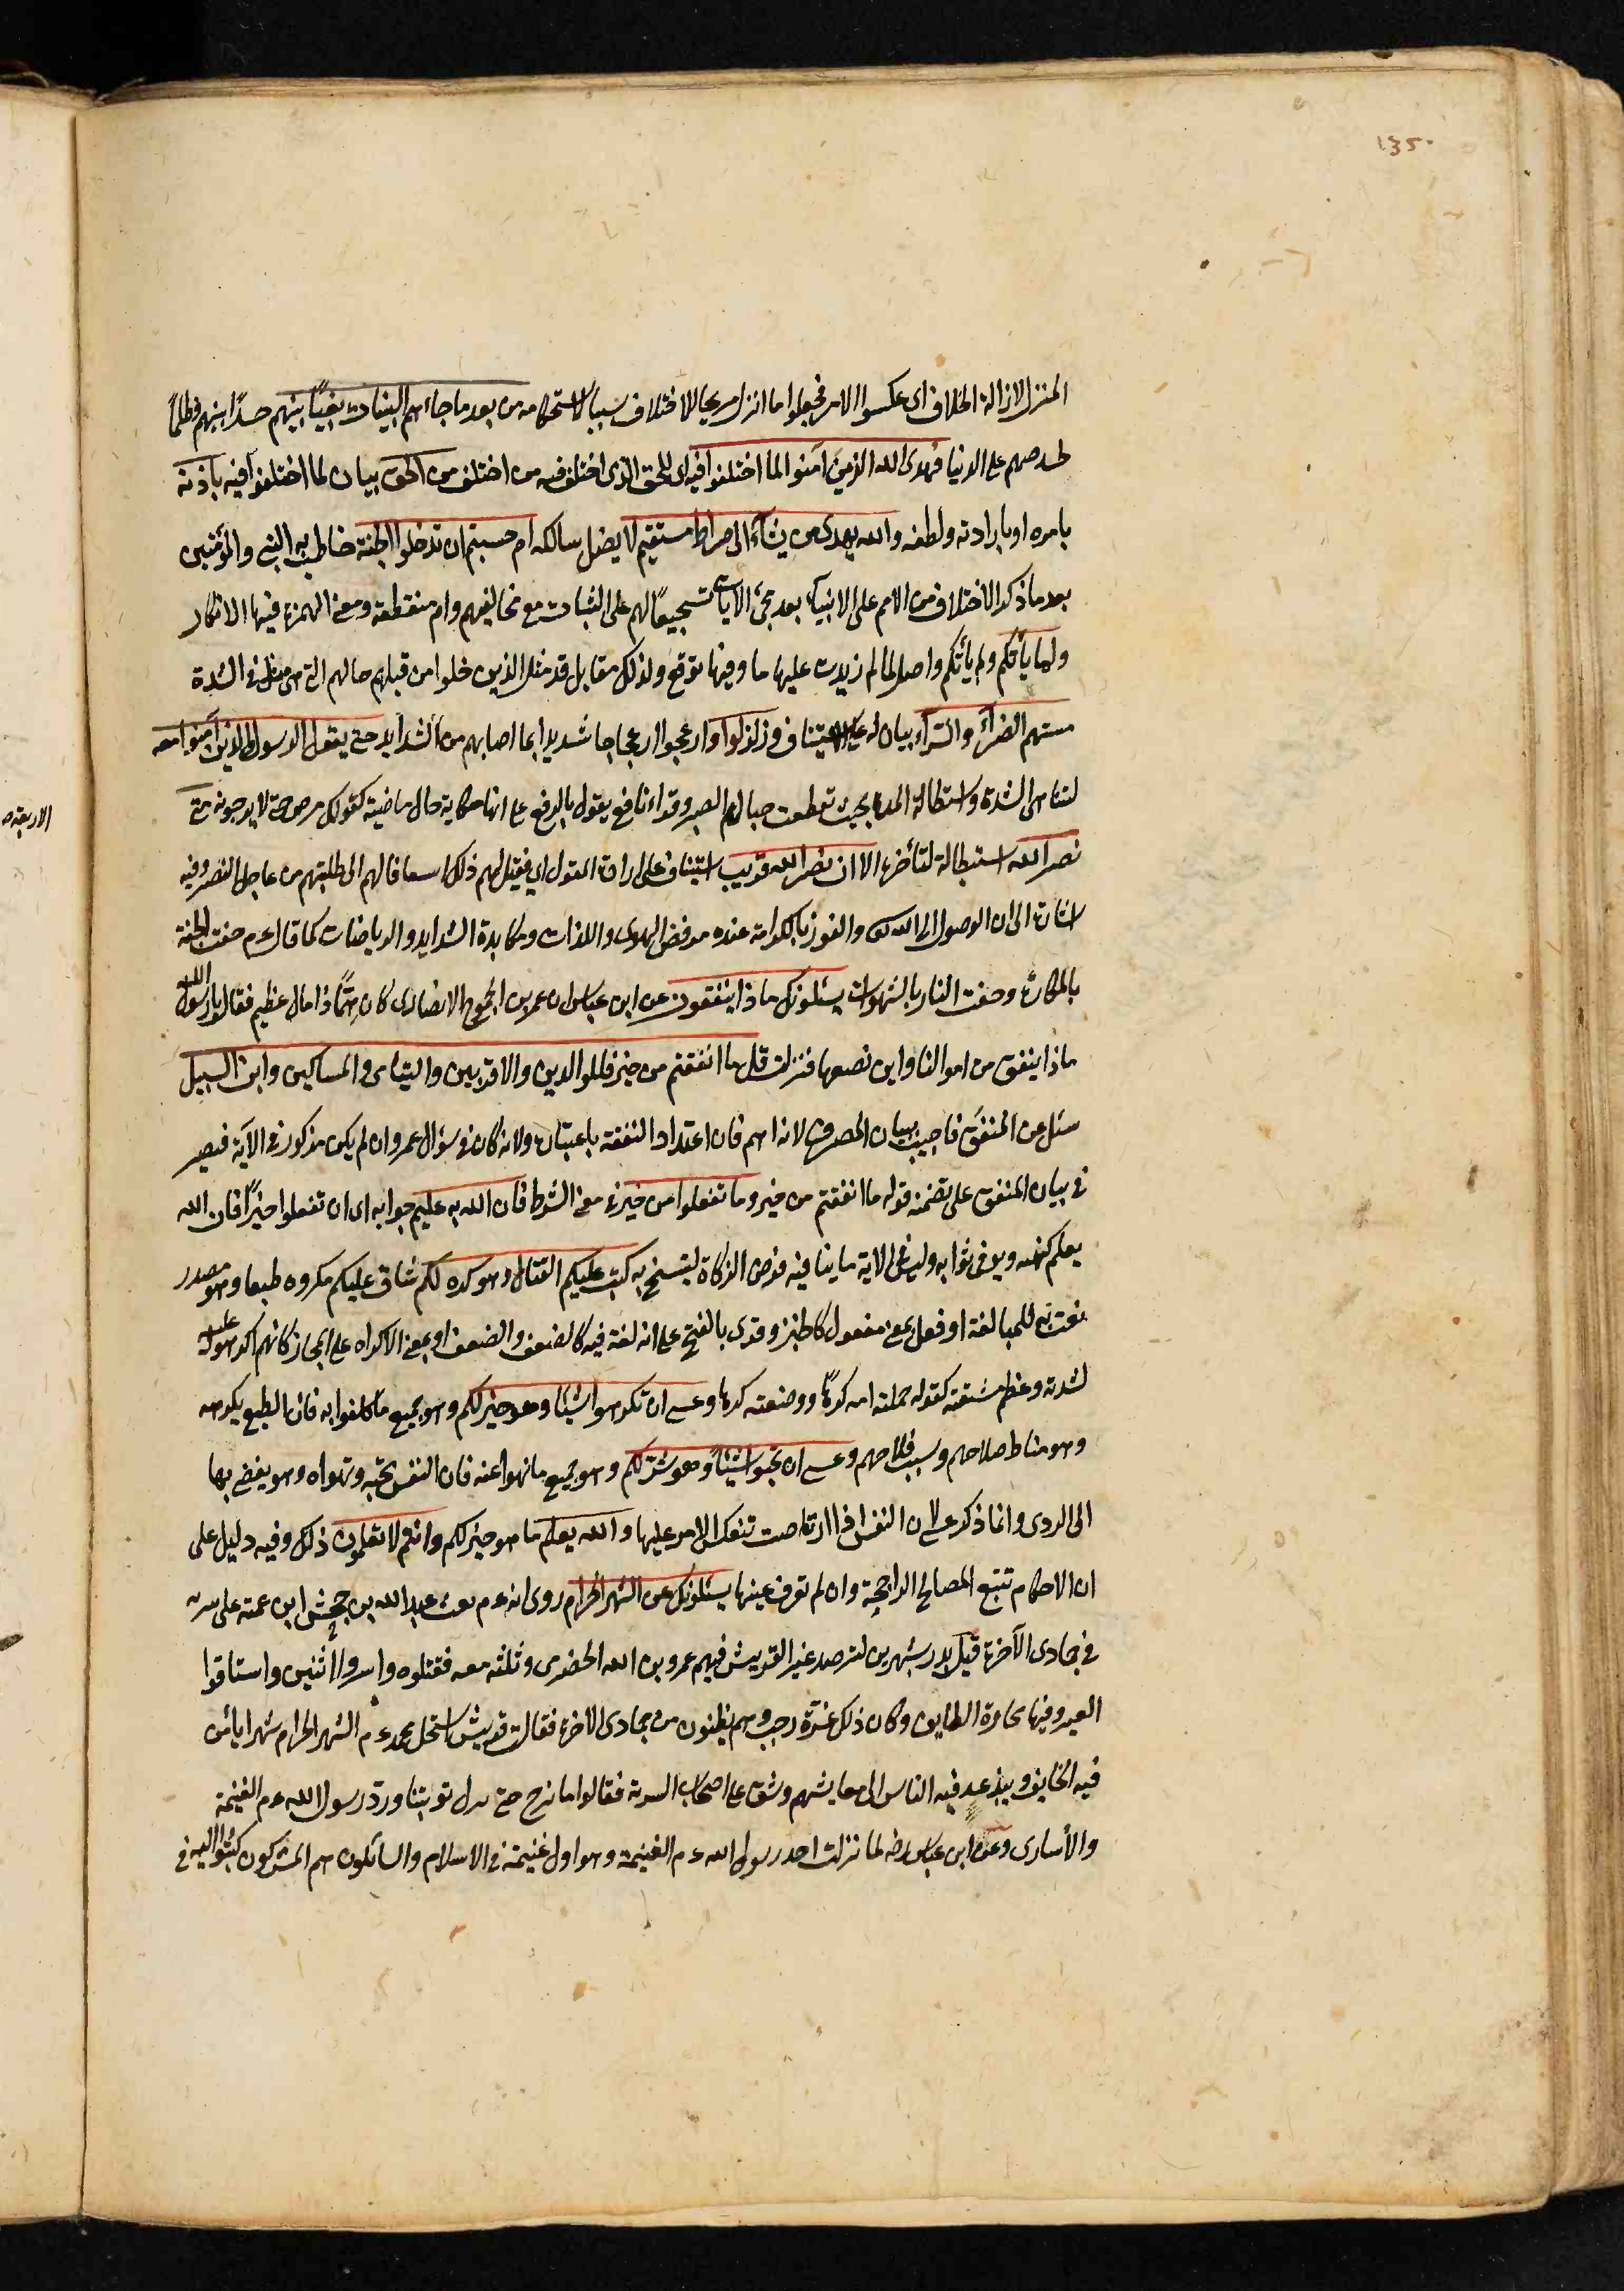 135
المنزل لازالة الخلاف اى عكسوا الامر فجعلوا ما انزل مزيحا للاختلاف سببا لاستحكامه من بعد ما جاءتهم البينات بغيا بينهم حسدا بينهم وظلما
لحرصهم على الدنيا فهدى الله الذين آمنوا لما اختلفوا فيه اى للحق الذى اختلف فيه من اختلف من الحق بيان لما اختلفوا فيه باذنه
بامره او بارادته ولطفه والله يهدى من يشاء الى صراط مستقيم لا يضل سالكه ام حسبتم ان تدخلوا الجنة خاطب به النبى والمؤمنين
بعد ما ذكر الاختلاف من الامم على الانبياء بعد مجئ الآيات تشجيعا لهم على الثبات مع مخالفيهم وام منقطعة ومعنى الهمزة فيها الانكار
ولما يأتكم ولم يأتكم واصل لما لم زيدت عليها ما وفيها توقع ولذلك مقابل قد مثل الذين خلوا من قبلكم حالهم التى هى مثل فى الشدة
مستهم البأساء والضراء بيان له على الاستيناف وزلزلوا وازعجوا ازعاجا شديدا بما اصابهم من الشدايد حتى يقول الرسول والذين آمنوا معه
لتناهى الشدة واستطالة المدة بحيث تقطعت حبال الصبر وقراء نافع يقول بالرفع على انها حكاية حال ماضية كقولك مرض حتى لا يرجونه متى
نصر الله استبطالة لتأخره الا ان نصر الله قريب استيناف على ارادة القول اى فقيل لهم ذلك اسعافا لهم الى طلبتهم من عاجل النصر وفيه
اشارة الى ان الوصول الى الله والفوز بالكرامة عنده برفض الهوى واللذات ومكابدة الشدايد والرياضات كما قال ع م حفت الجنة
بالمكاره وحفت النار بالشهوات يسئلونك ماذا ينفقون عن ابن عباس ان عمرو بن الجموح الانصارى كان هما ذا مال عظيم فقال يا رسول الله
ماذا ينفق من اموالنا واين نضعها فنزلت قل ما انفقتم من خير فللوالدين والاقربين واليتامى والمساكين وابن السبيل
سئل عن المنفق فاجيب ببيان المصرف لانه اهم فان اعتداد النفقة باعتباره ولانه كان فى سؤال عمرو وان لم يكن مذكورا فى الآية فيصير
فى بيان المنفق على تضمنه قوله ما انفقتم من خير وما تفعلوا من خير فى معنى الشرط فان الله به عليم جوابه اى ان تفعلوا خيرا فان الله
يعلم كنهه ويوفى ثوابه وليس فى الاية ما ينافيه فرض الزكاة لينسخ به كتب عليكم القتال وهو كره لكم شاق عليكم مكروه طبعا وهو مصدر
نعت به للمبالغة او فعل بمعنى مفعول كالخبز وقرى بالفتح على انه لغة فيه كالضعف والضعف او بمعنى الاكراه على المجاز كانهم اكرهوا عليه
لشدته وعظم مشقته كقوله حملته امه كرها ووضعته كرها وعسى ان تكرهوا شيئا وهو خير لكم وهو جميع ما كلفوا به فان الطبع يكرهه
وهو مناط صلاحهم وسبب فلاحهم وعسى ان تحبوا شيئا وهو شر لكم وهو جميع ما نهوا عنه فان النفس تحبه وتهواه وهو يفضى بها
الى الردى وانما ذكر عسى لان النفس اذا ارتاضت تنعكس الامر عليها والله يعلم ما هو خير لكم وانتم لا تعلمون ذلك وفيه دليل على
ان الاحكام تتبع المصالح الراجحة وان لم تعرف عينها يسئلونك عن الشهر الحرام روى انه ع م بعث عبد الله بن جحش ابن عمته على سرية
فى جمادى الآخرة قبل بدر بشهرين لترصد عير القريش فيهم عمرو بن الله الحضرمى وثلثه معه فقتلوه واسروا اثنين واستاقوا
العير وفيها تجارة الطايف وكان ذلك غرة رجب وهم يظنون من جمادى الاخرة فقالت قريش استحل محمد ع م الشهر الحرام شهرا يأمن
فيه الخايف ويبذعر فيه الناس الى معايشهم وشق على اصحاب السرية فقالوا ما نبرح حتى تنزل توبتنا ورد رسول الله ع م الغنيمة
والأسارى وعن ابن عباس رضه لما نزلت اخذ رسول الله ع م الغنيمة وهو اول غنيمة فى الاسلام والسائلون هم المشركون كتبوا اليه فى